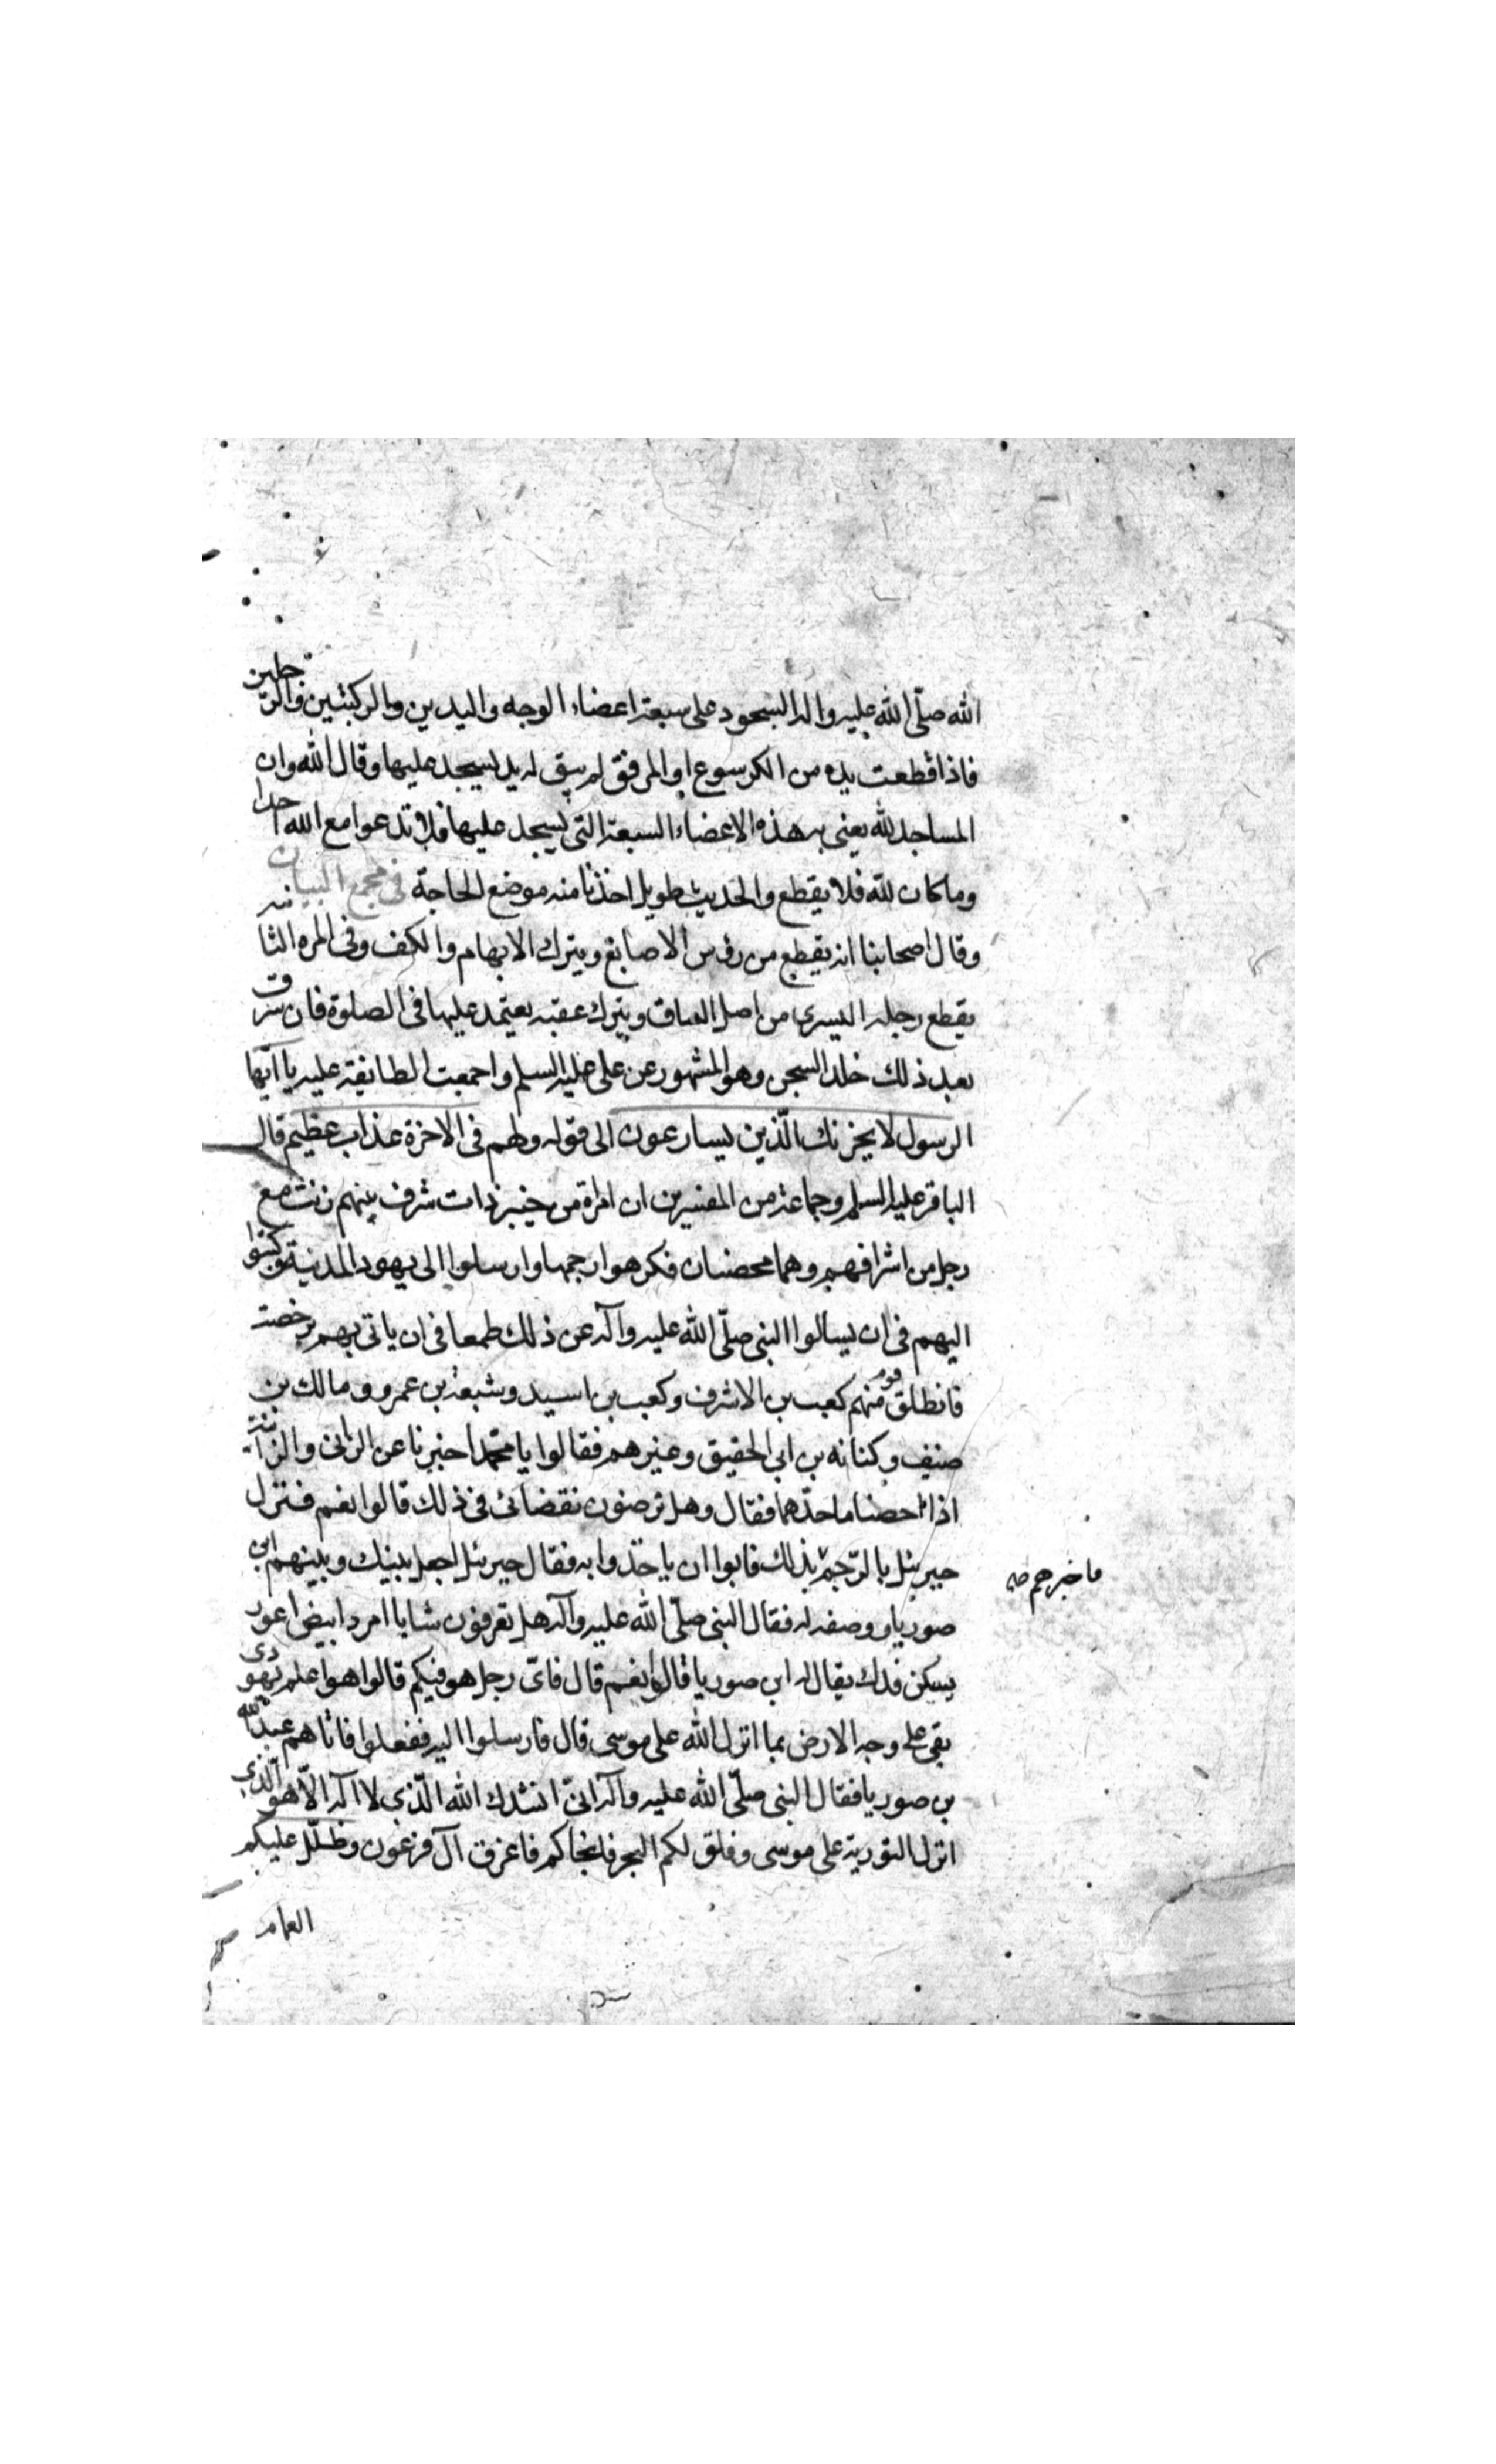 الله صلّى الله عليه واله السجود على سبعة اعضاء الوجه واليدين والركبتين والرجلين
فاذا قطعت يده من الكرسوع او المرفق لم يبق له يد يسجد عليها وقال الله وان
المساجد لله يعنى به هذه الاعضاء السبعة التى يسجد عليها فلا تدعوا مع الله احدا
وما كان لله فلا يقطع والحديث طويل اخذنا منه موضع الحاجة فى مجمع البيان
وقال اصحابنا انه يقطع من رؤس الاصابع ويترك الابهام والكف وفى المره الثانيه
يقطع رجله اليسرى من اصل الساق ويترك عقبه يعتمد عليها فى الصلوة فان سرق
بعد ذلك خلد السجن وهو المشهور عن على عليه السلم واجمعت الطايفة عليه يا ايّها
الرسول لا يحزنك الّذين يسارعون الى قوله ولهم فى الاخرة عذاب عظيم قال
الباقر عليه السلم وجماعة من المفسرين ان امراة من خيبر ذات شرف بينهم زنت مع
رجل من اشرافهم وهما محصنان فكرهوا رجمها وارسلوا الى يهود المدينة وكتبوا
اليهم فى ان يسالوا النبى صلّى الله عليه وآله عن ذلك طمعا فى ان ياتى بهم برخصة
فانطلق قوم منهم كعب بن الاشرف وكعب بن اسيد وشبعة بن عمرو ومالك بن
صنيف وكنانه بن ابى الحقيق وغيرهم فقالوا يا محمّد اخبرنا عن الزانى والزانية
اذا احصنا ما حدّهما فقال وهل ترضون نقضائى فى ذلك قالوا نعم فنزل
جبرئيل بالرّجم بذلك فابوا ان ياخذوا به فقال جبرئيل اجعل بينك وبينهم ابن
فاخبرهم صح
صوريا ووصفه له فقال النبى صلّى الله عليه وآله هل تعرفون شابا امرد ابيض اعور
يسكن فدك يقال له ابن صوريا قالوا نعم قال فاىّ رجل هو فيكم قالوا هو اعلم يهودى
بقى على وجه الارض بما انزل الله على موسى قال فارسلوا اليه ففعلوا فاتاهم عبد الله
بن صوريا فقال النبى صلّى الله عليه وآله انىّ انشدك الله الّذى لا اله الاّ هو الّذى
انزل التورية على موسى وفلق لكم البحر فانجاكم فاغرق آل فرعون وظلّل عليكم
الغمام